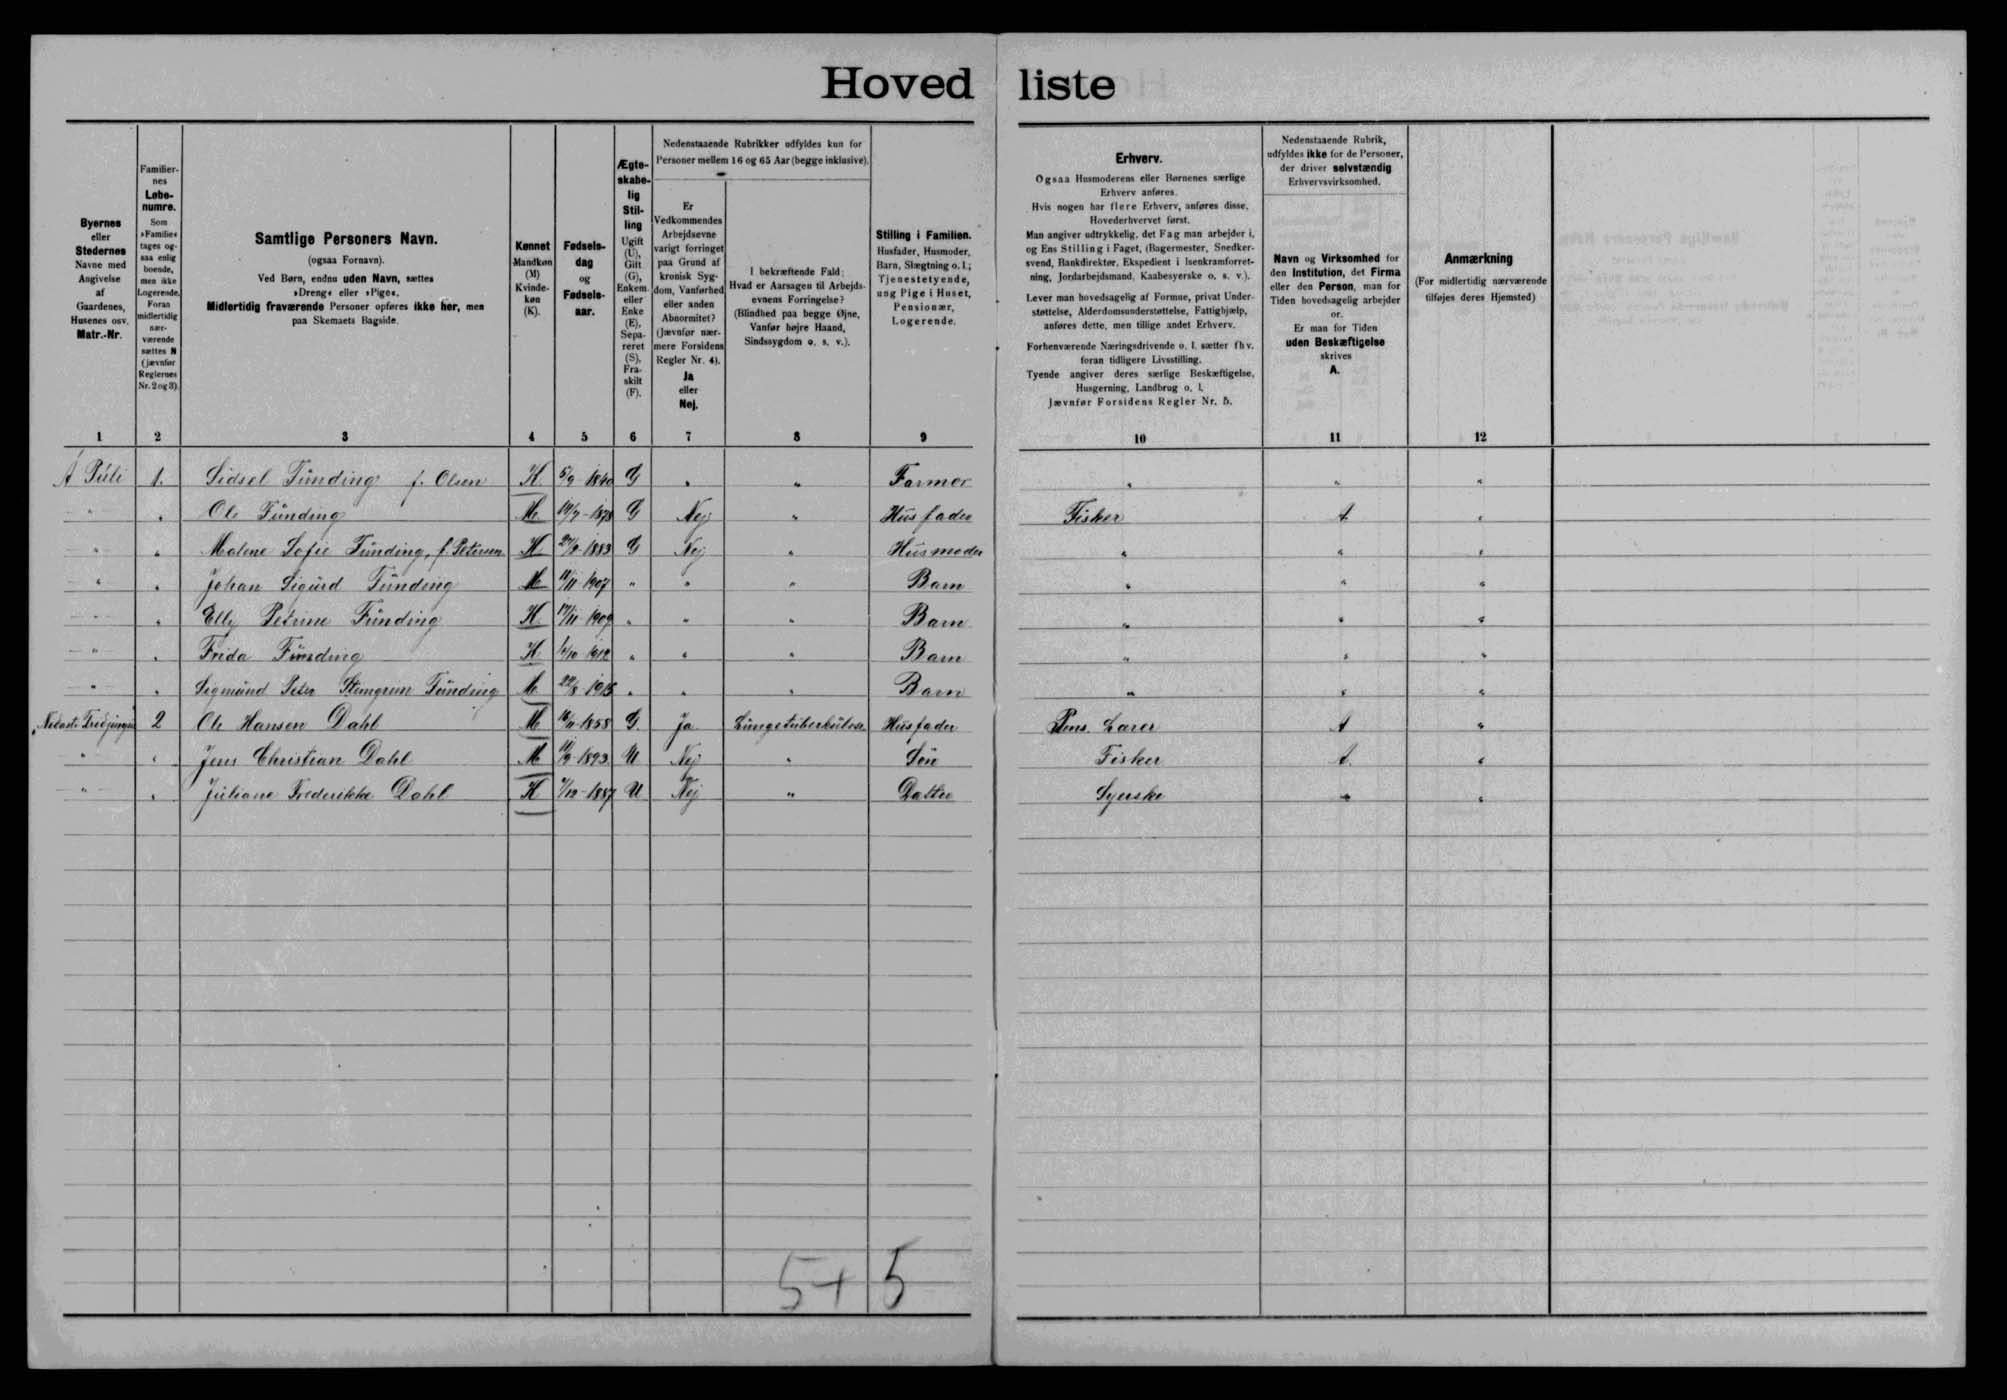 Hoved liste
Byernes
eller
Stedernes
Navne med
Angivelse
af
Gaardenes,
Husenes osv.
Matr.-Nr.
Familier-
nes
Løbe-
numre.
Som
»Familie«
tages og-
saa enlig
boende,
men ikke
Logerende.
Foran
midlertidig
nær-
værende
sættes N
(jævnfør
Reglernes
Nr. 2 og 3).
Samtlige Personers Navn.
(ogsaa Fornavn).
Ved Børn, endnu uden Navn, sættes
»Dreng« eller »Pige«.
Midlertidig fraværende Personer opføres ikke her, men
paa Skemaets Bagside.
Kønnet
Mandkøn
(M)
Kvinde-
køn
(K).
Fødsels-
dag
og
Fødsels-
aar.
Ægte-
skabe-
lig
Stil-
ling
Ugift
(U),
Gift
(G),
Enkem.
eller
Enke
(E),
Sepa-
reret
(S),
Fra-
skilt
(F).
Nedenstaaende Rubrikker udfyldes kun for
Personer mellem 16 og 65 Aar (begge inklusive).
Er
Vedkommendes
Arbejdsevne
varigt forringet
paa Grund af
kronisk Syg-
dom, Vanførhed
eller anden
Abnormitet?
(Jævnfør nær-
mere Forsidens
Regler Nr. 4).
Ja
eller
Nej.
I bekræftende Fald:
Hvad er Aarsagen til Arbejds-
evnens Forringelse?
(Blindhed paa begge Øjne,
Vanfør højre Haand,
Sindssygdom o. s. v.).
Stilling i Familien.
Husfader, Husmoder,
Barn, Slægtning o. l.;
Tjenestetyende,
ung Pige i Huset,
Pensionær,
Logerende.
Erhverv.
Ogsaa Husmoderens eller Børnenes særlige
Erhverv anføres.
Hvis nogen har flere Erhverv, anføres disse,
Hovederhvervet først.
Man angiver udtrykkelig, det Fag man arbejder i,
og Ens Stilling i Faget, (Bagermester, Snedker-
svend, Bankdirektør, Ekspedient i Isenkramforret-
ning, Jordarbejdsmand, Kaabesyerske o. s. v.).
Lever man hovedsagelig af Formue, privat Under-
støttelse, Alderdomsunderstøttelse, Fattighjælp,
anføres dette, men tillige andet Erhverv.
Forhenværende Næringsdrivende o. l. sætter fhv.
foran tidligere Livsstilling.
Tyende angiver deres særlige Beskæftigelse,
Husgerning, Landbrug o. l.
Jævnfør Forsidens Regler Nr. 5.
Nedenstaaende Rubrik,
udfyldes ikke for de Personer,
der driver selvstændig
Erhvervsvirksomhed.
Navn og Virksomhed for
den Institution, det Firma
eller den Person, man for
Tiden hovedsagelig arbejder
for.
Er man for Tiden
uden Beskæftigelse
skrives
A.
Anmærkning
(For midlertidig nærværende
tilføjes deres Hjemsted)
1 2 3 4 5 6 7 8 9 10 11 12
Á Túli 1. Sidsel Tünding f. Olsen K 5/9-1840 G " " Farmor " " "
" " Ole Tünding M 19/7-1878 G Nej " Husfader Fisker A "
" " Malene Sofie Tünding, f. Petersen K 27/2-1883 G Nej " Husmoder " " "
" " Johan Sigurd Tünding M 11/11-1907 " " " Barn " " "
" " Elly Petrine Tünding K 17/11-1909 " " " Barn " " "
" " Frida Tünding K 1/10-1912 " " " Barn " " "
" " Sigmund Peter Tünding M 22/8-1915 " " " Barn " " "
2 Ole Hansen Dahl M 16/11-1858 G. Ja Lungetuberkulose Husfader Pens. Lærer A "
" " Jens Christian Dahl M 11/9-1893 U Nej " Søn Fisker A "
" " Juliane Frederikke Dahl K 7/12-1887 U Nej " Datter Syerske " "
5+5